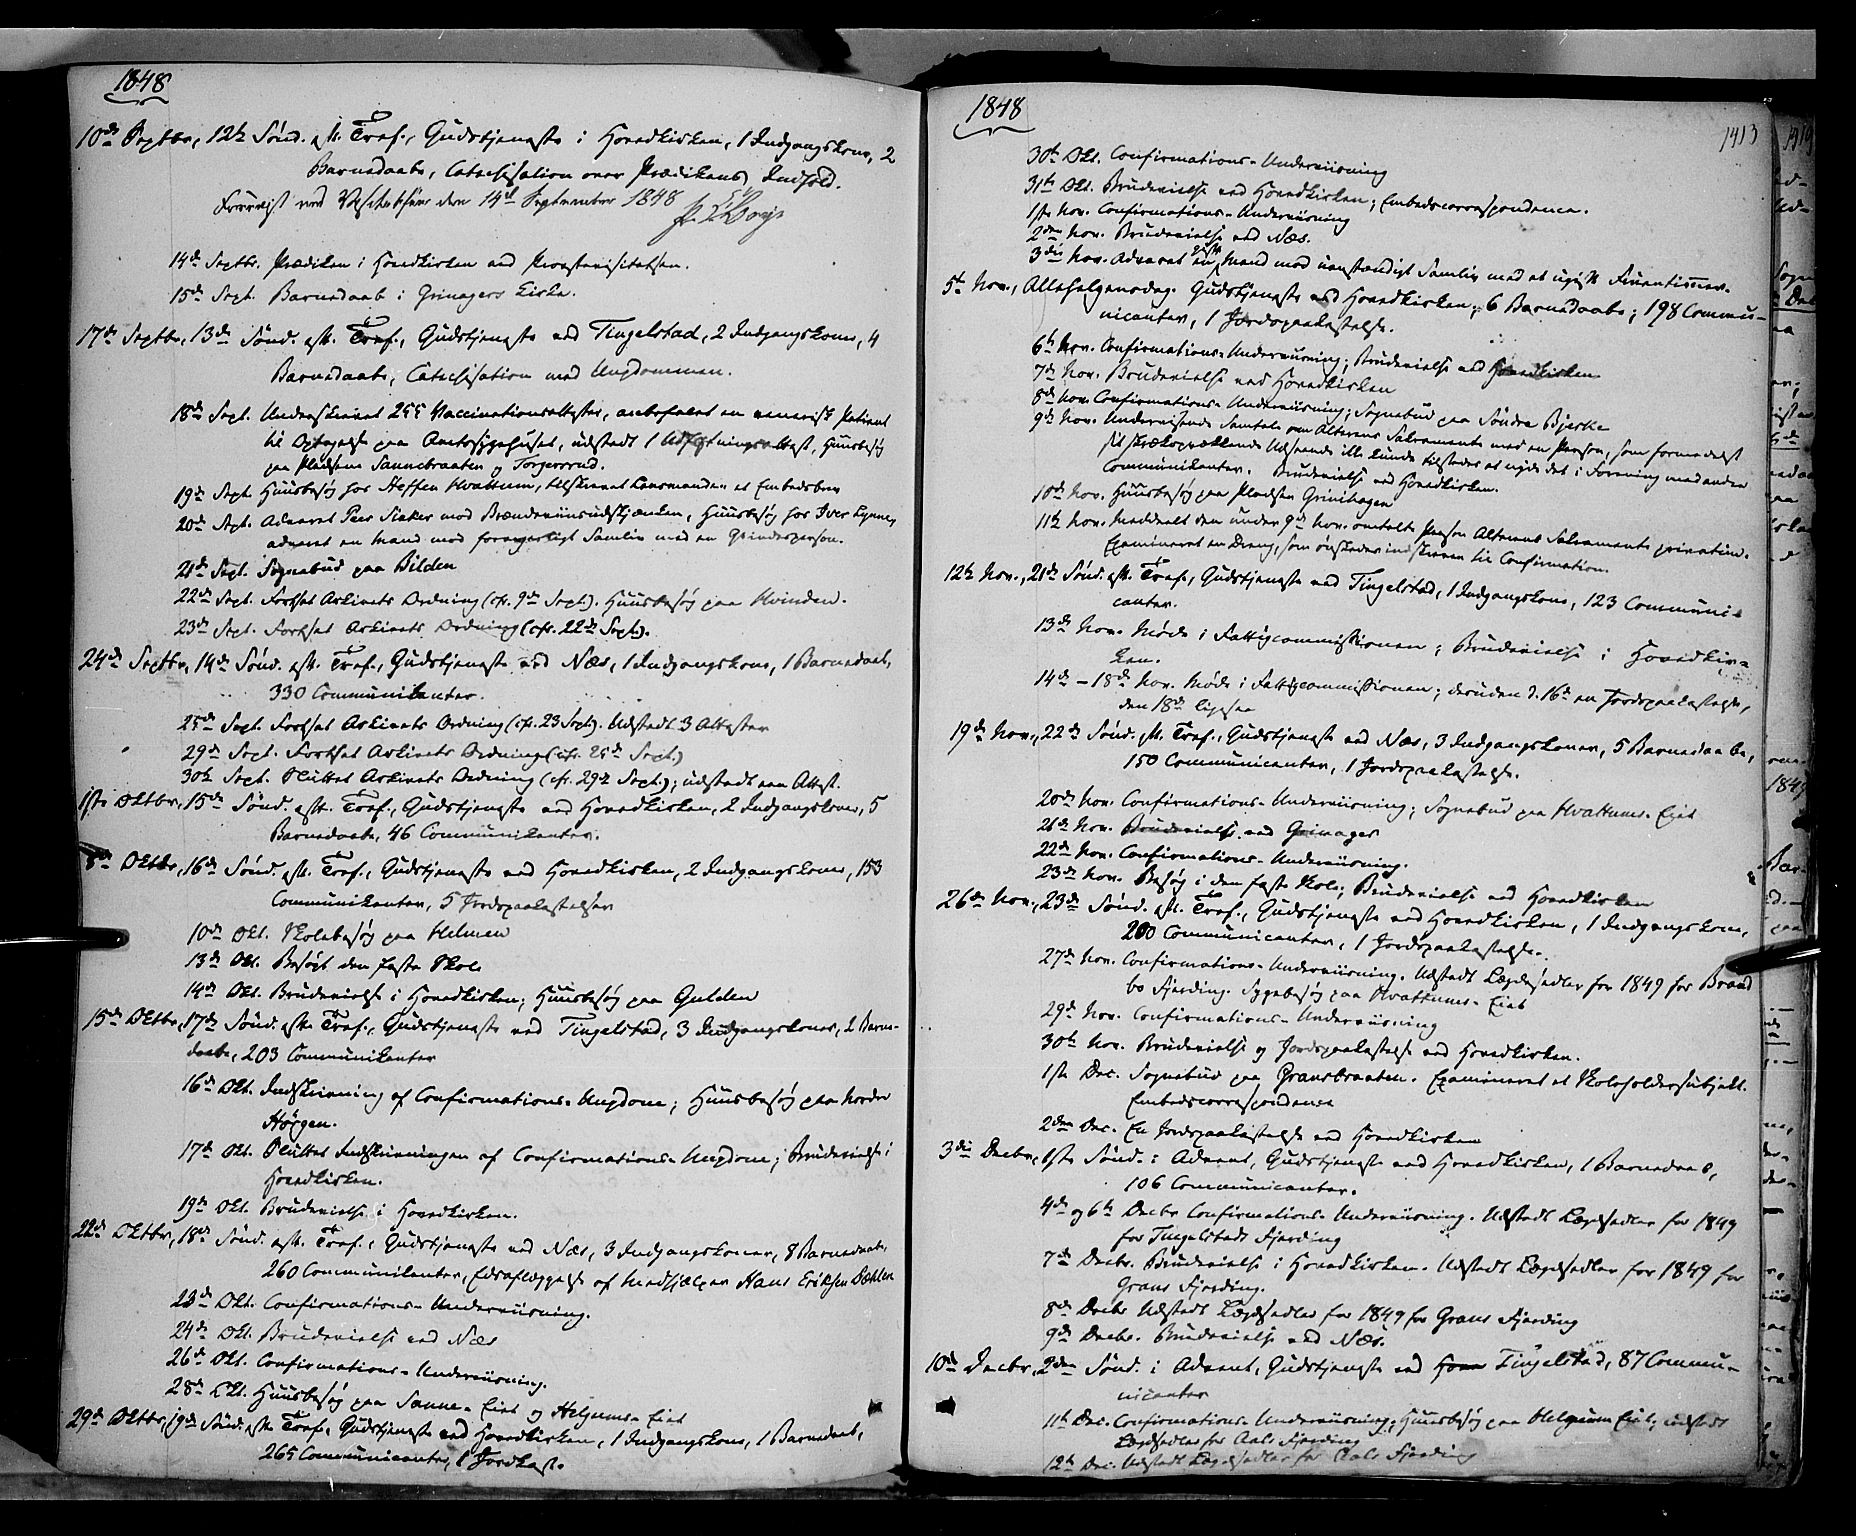 1848
10de Septbr, 12te Sönd. eft. Tref., Gudstjeneste i Hovedkirken, 1 Indgangskone, 2
Barnedaabe, Catechisation over Prædikens Indhold.
Foreviist ved Visitatsen den 14de September 1848
14de Septbr. Prædiken i Hovedkirken ved Provstevisitatsen.
15de Sept. Barnedaab i Grinagers Kirke.
17de Septbr, 13de Sönd. eft. Tref., Gudstjeneste ved Tingelstad, 2 Indgangskoner, 4
Barnedaabe, Catechisation med Ungdommen.
18de Sept. Underskrevet 255 Vaccinationsattester, anbefalet en venerisk Patient
til Optagelse paa Amtssygehuset, udstedt 1 Udflytningsattest, Huusbesøg
paa Pladsene Sannebraaten og Torgersrud.
19de Sept. Huusbesøg hos Steffen Hvattum, tilskrevet Lensmanden et Embedsbrev
20de Sept. Advaret Peer mod Brændeviinsudskjænken, Huusbesøg hos Iver Lynne,
advaret en Mand mod forargerligt Samliv med en Qvindesperson.
21de Sept. Sognebud paa Bilden
22de Sept. Fortsat Arkivets Ordning (cfr. 9de Sept.). Huusbesøg paa Hvinden.
23de Sept. Fortsat Arkivets Ordning (cfr. 22de Sept.).
24de Septbr, 14de Sönd. eft. Tref., Gudstjeneste ved Næs, 1 Indgangskone, 1 Barnedaab,
330 Communikanter.
25de Sept. Fortsat Arkivets Ordning (cfr. 23 Sept). Udstedt 3 Attester
29de Sept. Fortsat Arkivets Ordning (cfr. 25de Sept.)
30te Sept. Sluttet Arkivets Ordning (cfr. 29de Sept.); udstedt een Attest.
1ste Oktbr, 15de Sönd. eft. Tref., Gudstjeneste ved Hovedkirken, 2 Indgangskoner, 5
Barnedaabe, 46 Communikanter.
8de Oktbr, 16de Sönd. eft. Tref., Gudstjeneste ved Hovedkirken, 2 Indgangskoner, 153
Communikanter, 5 Jordpaakastelser
10de Okt. Skolebesøg paa Helmen
13de Okt. Besøgt den faste Skole
14de Okt. Brudevielse i Hovedkirken; Huusbesøg paa Gulden
15de Oktbr, 17de Sönd. eft. Tref., Gudstjeneste ved Tingelstad, 3 Indgangskoner, 2 Barne-
daabe, 203 Communikanter
16de Okt. Indskrivning af Confirmations-Ungdom; Huusbesøg paa Nordre
Hörgen.
17de Okt. Sluttet Indskrivningen af Confirmations-Ungdom; Brudevielse i
Hovedkirken.
19de Okt. Brudevielse i Hovedkirken.
22de Oktbr, 18de Sönd. eft. Tref., Gudstjeneste ved Næs, 3 Indgangskoner, 8 Barnedaabe,
260 Communikanter, Edsaflæggelse af Medhjælper Hans Eriksen Dæhlen
23de Okt. Confirmations-Underviisning.
24de Okt. Brudevielse ved Næs
26de Okt. Confirmations-Underviisning.
28de Okt. Huusbesøg paa Sanne-Eiet og Helgums-Eiet
29de Oktbr, 19de Sönd. eft. Tref., Gudstjeneste ved Hovedkirken, 1 Indgangskone, 1 Barnedaab,
265 Communicanter, 1 Jordkast.
1848
1413
30te Okt. Confirmations-Underviisning
31te Okt. Brudevielse ved Hovedkirken; Embedscorrespondence.
1ste Nov. Confirmations-Underviisning
2den Nov. Brudevielse ved Næs.
3die Nov. Advaret en gift Mand mod uanstændigt Samliv med et ugift Fruentimmer.
5te Nov., Allehelgensdag. Gudstjeneste ved Hovedkirken; 6 Barnedaabe; 198 Commu-
nicanter, 1 Jordpaakastelse.
6te Nov. Confirmations-Underviisning; Brudevielse ved Hovedkirken
7de Nov. Brudevielse ved Hovedkirken
8de Nov. Confirmations-Underviisning; Sognebud paa Søndre Bjerke
9de Nov. Undervisende Samtale om Alterens Sakramente med en Person, som formedelst
sit skrækopvækkende Udseende ikke kunde tilstedes at nyde det i Forening med andre
Communikanter. Brudevielse ved Hovedkirken.
10de Nov. Huusbesøg paa Pladsen Grinihagen
11te Nov. Meddeelt den under 9de Nov. omtalte Person Alterens Sakramente privatim.
Examineret en Dreng, som ønskedes indskreven til Confirmation.
12te Nov., 21de Sönd. eft. Tref., Gudstjeneste ved Tingelstad, 1 Indgangskone, 123 Communi-
canter.
13de Nov. Møde i Fattigcommissionen; Brudevielse i Hovedkir-
ken.
14de - 18de Nov. Møde i Fattigcommissionen; desuden d. 16de en Jordpaakastelse,
den 18de ligesaa
19de Nov., 22de Sönd. eft. Tref., Gudstjeneste ved Næs, 3 Indgangskoner, 5 Barnedaabe,
150 Communicanter, 1 Jordpaakastelse.
20de Nov. Confirmations-Underviisning; Sognebud paa Hvattums-Eiet
21de Nov. Brudevielse ved Grinager
22de Nov. Confirmations-Underviisning.
23de Nov. Besøg i den faste Skole; Brudevielse ved Hovedkirken
26de Nov., 23de Sönd. eft. Tref., Gudstjeneste ved Hovedkirken, 1 Indgangskone,
200 Communicanter, 1 Jordpaakastelse.
27de Nov. Confirmations-Underviisning. Udstedt Lægdsedler for 1849 for Brand
bo Fjerding. Sygebesøg paa Hvattums-Eiet
29de Nov. Confirmations-Underviisning
30te Nov. Brudevielse og Jordpaakastelse ved Hovedkirken.
1ste Dec. Sognebud paa Gransbraaten. Examineret et Skoleholdersubjekt.
Embedscorrespondence
2den Dec. En Jordpaakastelse ved Hovedkirken
3die Decbr, 1ste Sönd. i Advent, Gudstjeneste ved Hovedkirken, 1 Barnedaab,
106 Communicanter.
4de og 6te Decbr Confirmations-Underviisning. Udstedt Lægdsedler for 1849
for Tingelstads Fjerding
7de Decbr. Brudevielse i Hovedkirken. Udstedt Lægdsedler for 1849 for
Grans Fjerding.
8de Decbr Udstedt Lægdsedler for 1849 for Grans Fjerding
9de Decbr. Brudevielse ved Næs.
10de Decbr, 2den Sönd. i Advent, Gudstjeneste ved Hove Tingelstad, 87 Commu-
nicanter
11te Dec. Confirmations-Underviisning; Huusbesøg paa Helgum Eiet; udstedt
Lægdsedler for Aals Fjerding
12te Dec. Udstedt Lægdsedler for Aals Fjerding